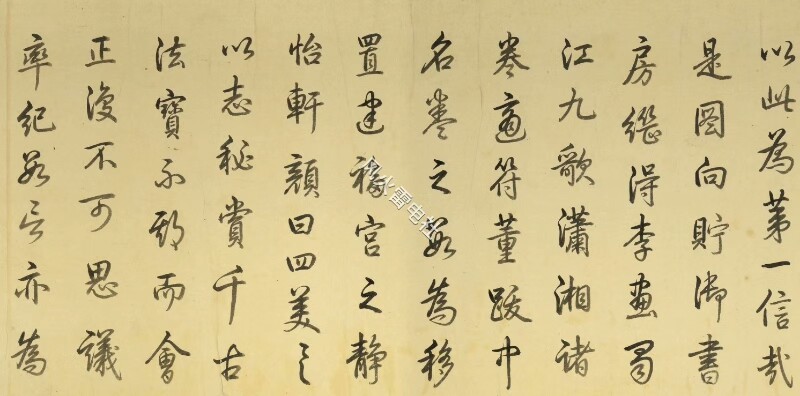 以此為第一信哉
是圖向貯御書
房繼得李畫蜀
江九歌瀟湘諸
卷適符董跋中
名卷之數為移
置建福宮之靜
怡軒顏曰四美具
以志秘賞千古
法寶不期而會
正復不可思議
率紀數言亦為